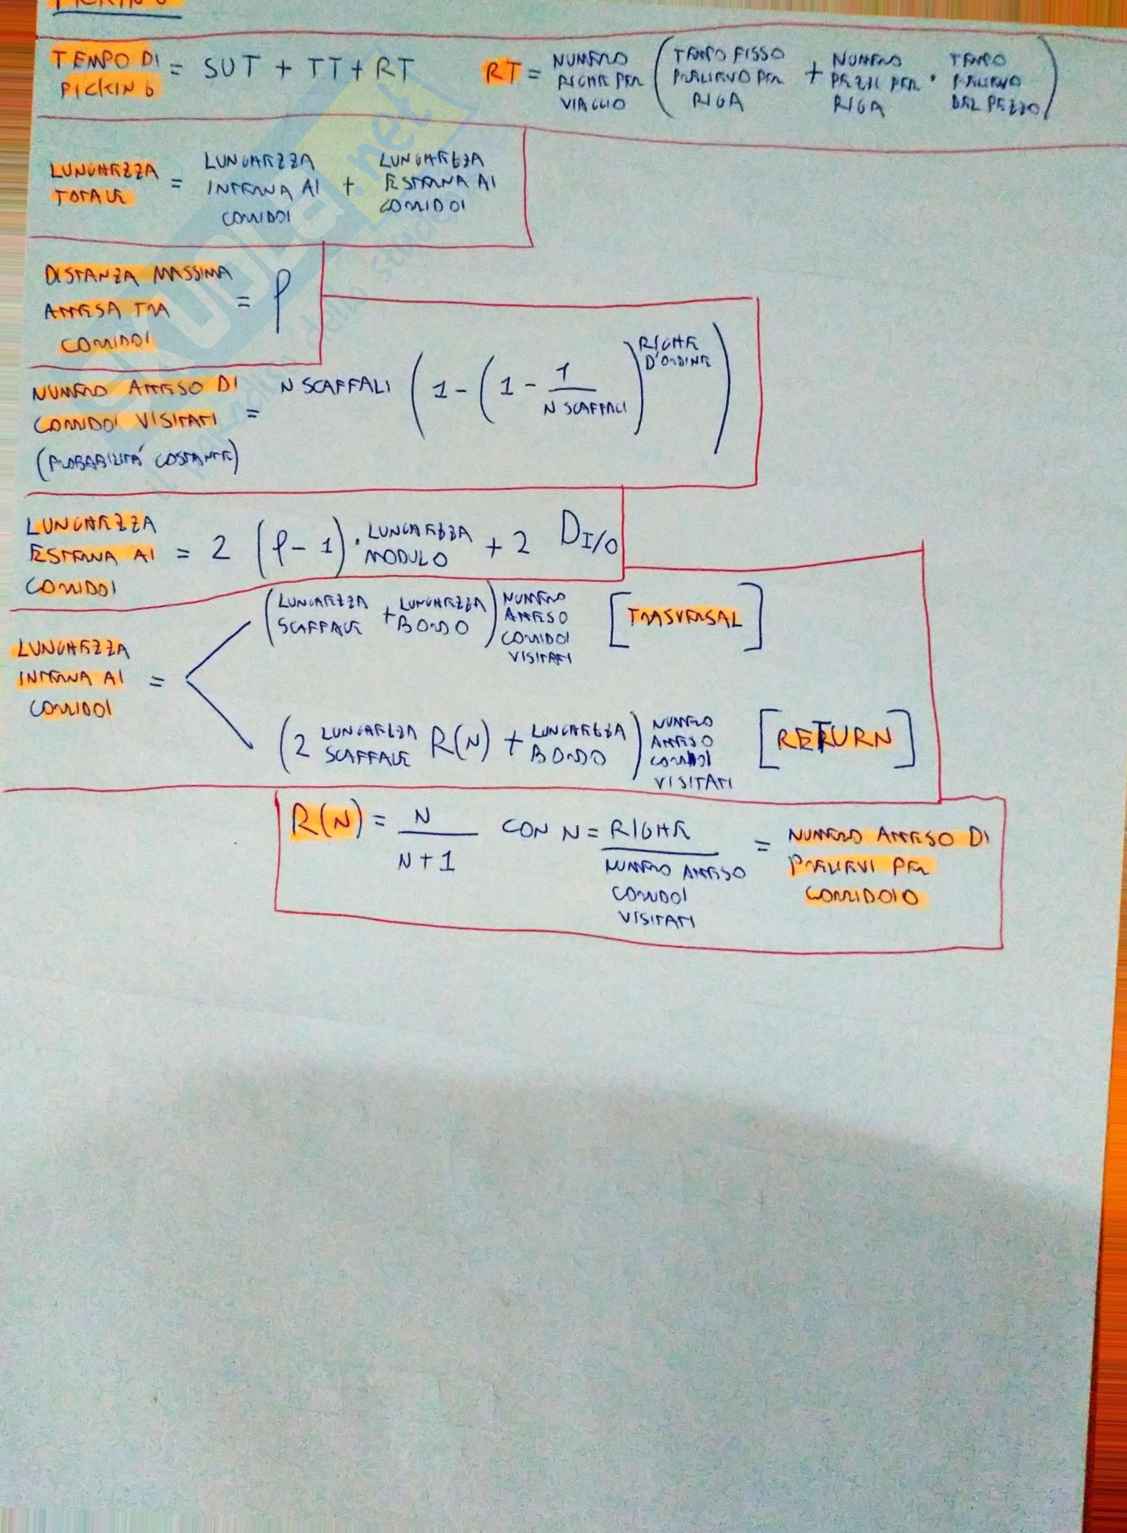 PICKING
TEMPO DI PICKING = SUT + TT + RT
RT = NUMERO RIGHE PER VIAGGIO (TEMPO FISSO PRELIEVO PER RIGA + NUMERO PEZZI PER RIGA · TEMPO PRELIEVO DEL PEZZO)
LUNGHEZZA TOTALE = LUNGHEZZA INTERNA AI CORRIDOI + LUNGHEZZA ESTERNA AI CORRIDOI
DISTANZA MASSIMA ATTESA TRA CORRIDOI = ρ
NUMERO ATTESO DI CORRIDOI VISITATI (PROBABILITÀ COSTANTE) = N SCAFFALI (1 - (1 - 1 / N SCAFFALI) RIGHE D'ORDINE)
LUNGHEZZA ESTERNA AI CORRIDOI = 2 (ρ - 1) · LUNGHEZZA MODULO + 2 D I/O
LUNGHEZZA INTERNA AI CORRIDOI =
(LUNGHEZZA SCAFFALE + LUNGHEZZA BORDO) NUMERO ATTESO CORRIDOI VISITATI [TRASVERSAL]
(2 LUNGHEZZA SCAFFALE R(N) + LUNGHEZZA BORDO) NUMERO ATTESO CORRIDOI VISITATI [RETURN]
R(N) = N / N + 1 CON N = RIGHE / NUMERO ATTESO CORRIDOI VISITATI = NUMERO ATTESO DI PRELIEVI PER CORRIDOIO